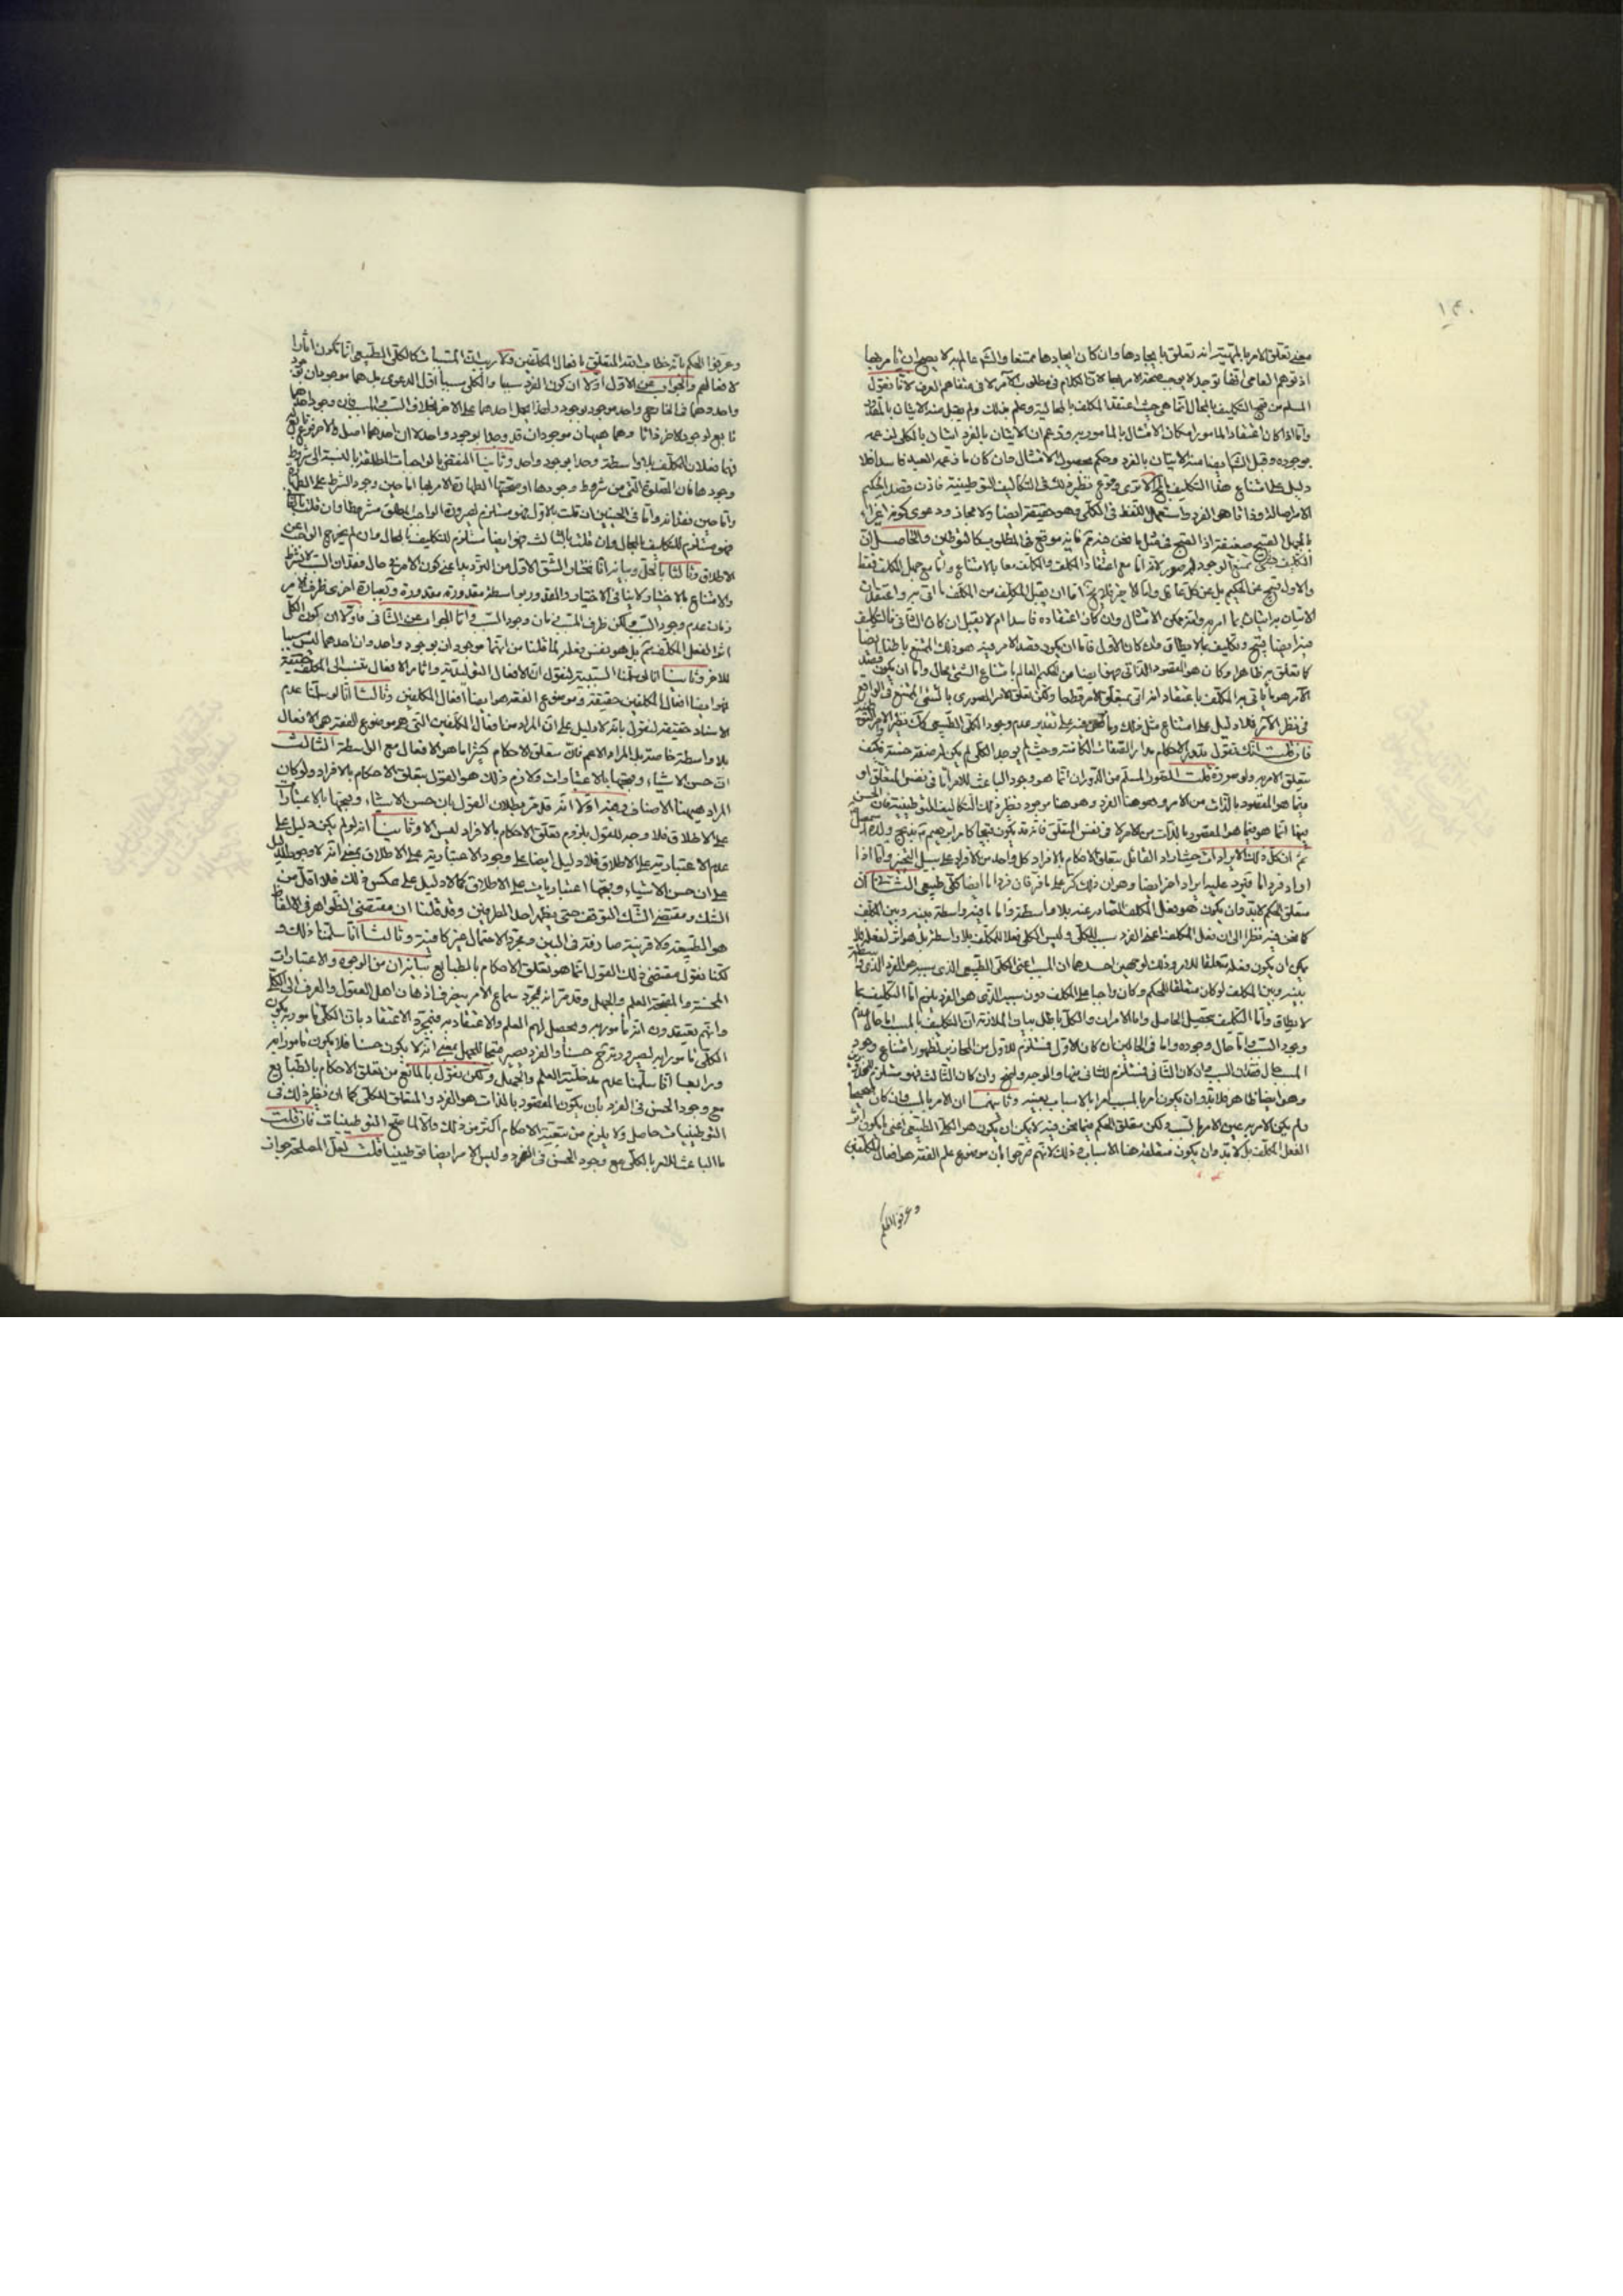 ١٣٠
معنى تعلق الامر بالمهية انه تعلق بايجادها وان كان ايجادها ممتنعا والشارع عالم به لا يصح ان يأمر بها
اذ توهم العامي اتفاقا توجده لا يوجب صحة الامر بها لان الكلام في مطلوب الآمر لا في متفاهم العرف لانا نقول
المسلم من قبح التكليف بالمحال انما هو حيث اعتقد المكلف بالمحالية وعلم بذلك ولم يقبل منه الاتيان بالمقدور
واما اذا كان اعتقاد المأمور امكان الامتثال بالمأمور به وزعم ان الاتيان بالفرد اتيان بالكلي لزعمه
بوجوده وقبل الشارع ايضا منه الاتيان بالفرد وحكم بحصول الامتثال وان كان ما زعمه العبد فاسدا فلا
دليل على امتناع هذا التكليف الا ترى وقوع نظير ذلك في التكاليف التوطينية فاذن قصد الحكيم
الامر اصالة وذاتا هو الفرد واستعمال اللفظ في الكلي وهو حقيقة ايضا ولا مجاز ودعوى كونه اغراء
بالجهل القبيح ضعيفة اذ القبح في مثل ما نحن فيه مم فانه موقع في المطلوب كالتوطين والحاصل ان
التكليف بممتنع الوجود له صور لانه اما مع اعتقاد المكلف والمكلف معا بالامتناع واما مع جهل المكلف فقط
والاول قبيح عن الحكيم بل عن كل عاقل واما الاخير فلا يخ اما ان يقبل المكلف من المكلف ما اتى به واعتقد ان
الاتيان به اتيان بما امر به وانه ممكن الامتثال وان كان اعتقاده فاسدا ام لا يقبل ان كان الثاني فالتكليف
فيه ايضا قبيح وتكليف بما لا يطاق وان كان الاول فاما ان يكون قصد الآمر فيه هو ذلك الممتنع باطنا ايضا
كما تعلق به ظاهرا وكان هو المقصود الذاتي فهو ايضا من الحكيم العالم بامتناع الشئ محال واما ان يكون قصد
الآمر هو ما ياتي به المكلف باعتقاد انه اتى بمتعلق الامر قطعا ولكن تعلق الامر الصوري بالشئ الممتنع في الواقع
في نظر الآمر فلا دليل على امتناع مثل ذلك وما نحن فيه على تقدير عدم وجود الكلي الطبيعي كذلك نظير الاوامر التوطينية
فان قلت انك تقول بتبعية الاحكام مدار الصفات الكامنة وحيث لم يوجد الكلي لم يكن له صفة حسنة فكيف
يتعلق الامر به ولو صورة قلت القدر المسلم من الدوران انما هو وجود الباعث للامر اما في نفس المتعلق او
فيما هو المقصود بالذات من الامر وهو هنا الفرد وهو هنا موجود نظير ذلك التكاليف التوطينية فان الحسن
فيها انما هو فيما هو المقصود بالذات من الامر لا في نفس المتعلق فانه قد يكون قبيحا كامر ابراهيم ع بذبح ولده اسمعيل
ثم ان كل ذلك الايراد ات حيث اراد القائل بتعلق الاحكام بالافراد كل واحد من الافراد على سبيل التخيير واما اذا
اراد فردا ما فيرد عليه ايراد اخر ايضا وهو ان ذلك كر على ما فر فان فردا ما ايضا كلي طبيعي الثاني ان
متعلق الحكم لابد وان يكون هو فعل المكلف الصادر عنه بلا واسطة واما ما فيه واسطة بينه وبين المكلف
كما نحن فيه نظرا الى ان فعل المكلف اعني الفرد سبب للكلي وليس الكلي فعلا للمكلف بلا واسطة بل هو اثر لفعله فلا
يمكن ان يكون وفعله متعلقا للامر وذلك لوجهين احدهما ان المسبب اعني الكلي الطبيعي الذي سببه هو الفرد الذي واسطة
بينه وبين المكلف لو كان متعلقا للحكم وكان واجبا على المكلف دون سببه الذي هو الفرد يلزم اما التكليف بما
لا يطاق واما التكليف بتحصيل الحاصل واما الامران والكل باطل بيان الملازمة ان التكليف بالمسبب اما حال عدم
وجود السبب واما حال وجوده واما في الحالين ان كان الاول فمستلزم للاول من المحاذير لظهور امتناع وجود
المسبب حال فقدان السبب وان كان الثاني فمستلزم للثاني منهما والوجه واضح وان كان الثالث فهو مستلزم للمحذورين
وهو ايضا ظاهر فلا بد وان يكون امر بالمسبب امرا بالاسباب بعينه وثانيهما ان الامر بالمسبب وان كان صحيحا
ولم يكن الامر به عين الامر بالسبب لكن متعلق الحكم فيما نحن فيه لا يمكن ان يكون هو الكلي الطبيعي اعني ما يكون اثر
الفعل المكلف بل لا بد وان يكون متعلقه هنا الاسباب وذلك لانهم صرحوا بان موضوع علم الفقه هو افعال المكلفين
وعرفوا الحكم
وعرفوا الحكم بانه خطاب الله المتعلق بافعال المكلفين ولا ريب ان المسببات كالكلي الطبيعي انما تكون اثارا
لافعالهم والجواب عن الاول اولا ان كون الفرد سببا والكلي مسببا اول الدعوى بل هما موجودان بوجود
واحد وهما في الخارج واحد موجود بوجود واحد ولذا يحمل احدهما على الاخر بخلاف السبب والمسبب فان وجود احدهما
تابع لوجود الاخر ذاتا وهما هيهنا موجودان قد وجدا بوجود واحد لا ان احدهما اصل والاخر فرع تابع
فهما فعلان للمكلف بلا واسطة وجدا بوجود واحد وثانيا النقض بالواجبات المطلقة بالنسبة الى شروط
وجودها فان الصلوة التي من شروط وجودها او صحتها الطهارة الامر بها اما حين وجود الشرط
واما حين فقدانه واما في الحينين ان قلت بالاول فهو مستلزم لصيرورة الواجب المطلق مشروطا وان قلت بالثاني
فهو مستلزم للتكليف بالمحال وان قلت بالثالث فهو ايضا مستلزم للتكليف بالمحال وان لم يخرج الواجب عن
الاطلاق وثالثا بالحل وبيانه انا نختار الشق الاول من الترديد بمعنى كون الامر في حال فقدان السبب
والامتناع بالاختيار لا ينافي الاختيار والمقدور بواسطة مقدورة مقدورة وبعبارة اخرى ظرف الامر
زمان عدم وجود السبب ولكن ظرف المسبب زمان وجود السبب واما الجواب عن الثاني فاولا ان كون الكلي
اثرا لفعل المكلف مم بل هو نفس فعله لما قلنا من انهما موجودان بوجود واحد وان احدهما ليس سببا
للاخر وثانيا انا لو سلمنا السببية لنقول ان الافعال التوليدية واثار الافعال تنسب الى المكلف حقيقة
فهو ايضا افعال المكلفين حقيقة وموضوع الفقه هو ايضا افعال المكلفين وثالثا انا لو سلمنا عدم
الاسناد حقيقة لنقول بانه لا دليل على ان المراد من افعال المكلفين التي هو موضوع للفقه هي الافعال
بلا واسطة خاصة بل المراد الاعم فان متعلق الاحكام كثيرا ما هو الافعال مع الواسطة الثالث
ان حسن الاشياء وقبحها بالاعتبارات ولازم ذلك هو القول بتعلق الاحكام بالافراد ولو كان
المراد هيهنا الاصناف وفيه اولا انه قد مر بطلان القول بان حسن الاشياء وقبحها بالاعتبارات
على الاطلاق فلا وجه للقول بلزوم تعلق الاحكام بالافراد ليس الا وثانيا انه لو لم يكن دليل على
عدم الاعتبارية على الاطلاق فلا دليل ايضا على وجود الاعتبارية على الاطلاق بمعنى انه لا وجود لدليل
على ان حسن الاشياء وقبحها اعتباريات على الاطلاق كما لا دليل على عكس ذلك فلا اقل من
الشك ومقتضى الشك التوقف حتى يظهر احد الطرفين وقد قلنا ان مقتضى الظواهر في الالفاظ
هو الطبيعة ولا قرينة صارفة في البين ومجرد الاحتمال غير كافية وثالثا انا سلمنا ذلك و
لكنا نقول مقتضى ذلك القول انما هو تعلق الاحكام بالطبايع بيانه ان من الوجوه والاعتبارات
المحسنة والمقبحة العلم والجهل وقد مر انه بمجرد سماع الامر ينصرف اذهان اهل العقول والعرف الى الكلي
وانهم يعتقدون انه مأمور به ويحصل لهم العلم والاعتقاد به فبمجرد الاعتقاد بان الكلي مأمور به يكون
الكلي مأمورا به لصيرورته ح حسنا والفرد يصير قبيحا للجهل بمعنى انه لا يكون حسنا فلا يكون مأمورا به
ورابعا انا سلمنا عدم مدخلية العلم والجهل ولكن نقول ما المانع من تعلق الاحكام بالطبايع
مع وجود الحسن في الفرد بأن يكون المقصود بالذات هو الفرد والمتعلق للكلي كما ان نظير ذلك في
التوطينيات حاصل ولا يلزم من تبعية الاحكام اكثر من ذلك والا لما صح التوطينيات فان قلت
ما الباعث للامر بالكلي مع وجود الحسن في الفرد وليس الامر ايضا توطينيا قلت لعل المصلحة